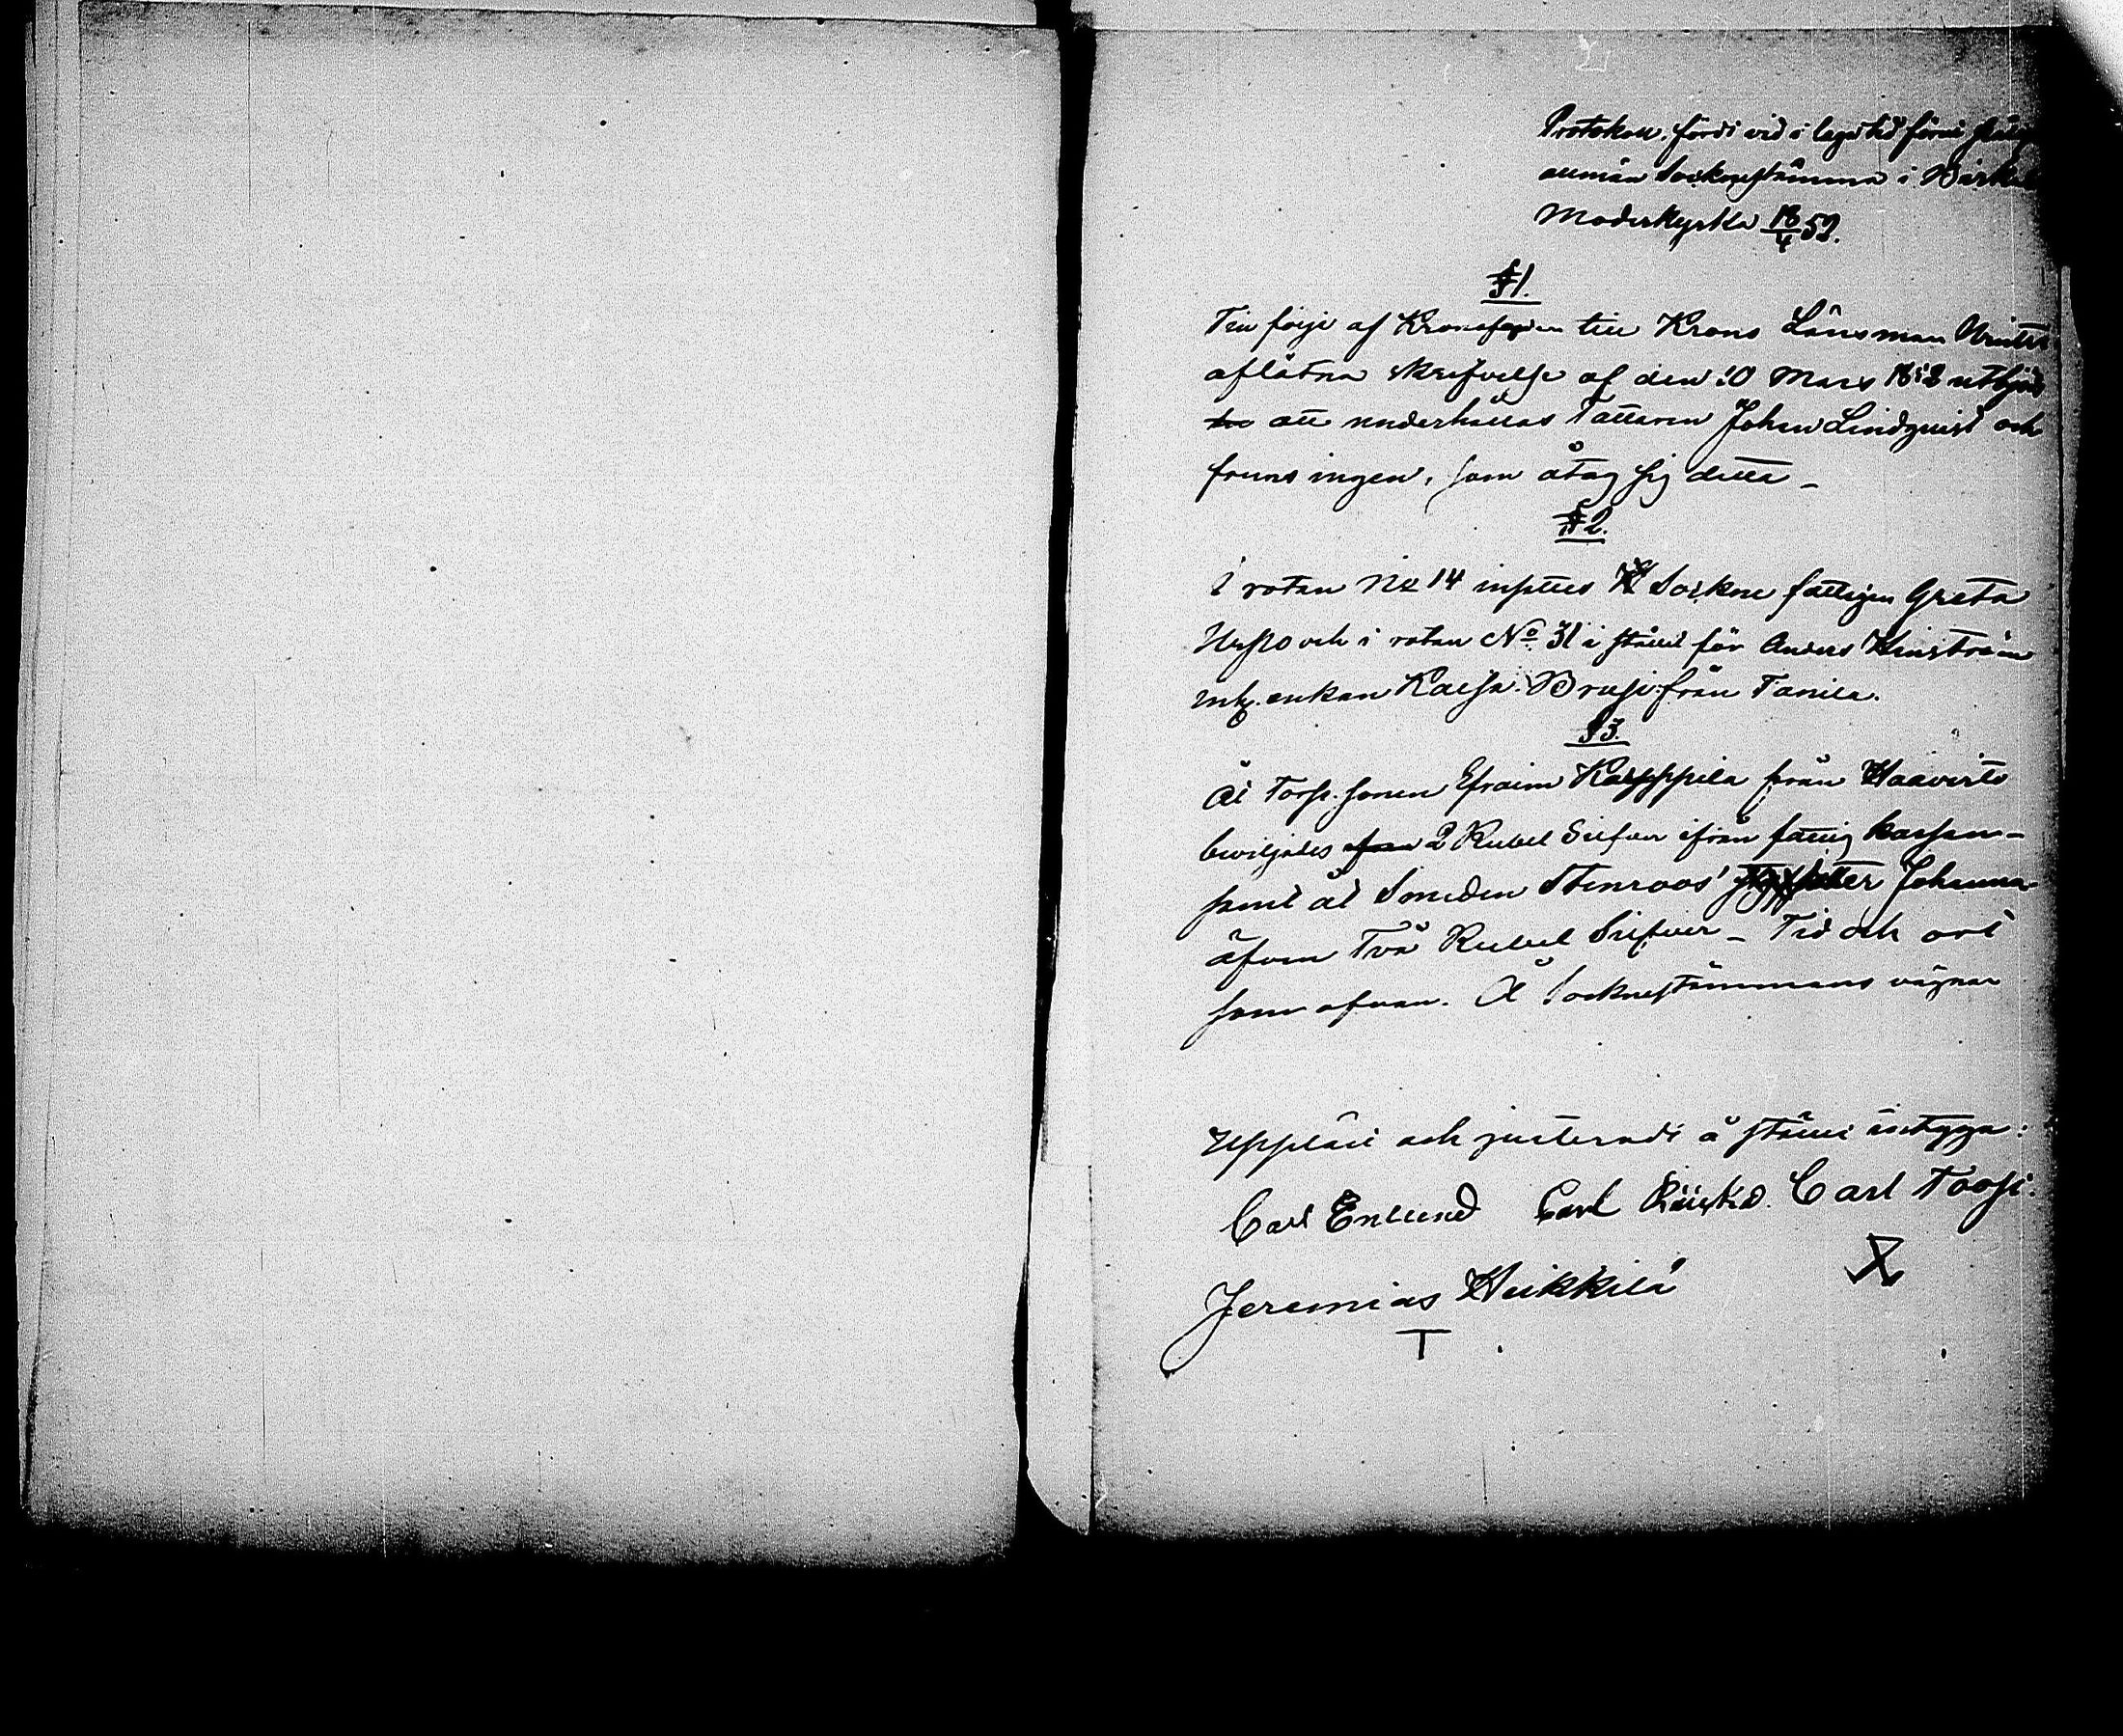 Protokoll, fördt vid i laga tid förut
allmän Socknestämma i Birkala
Moderkyrka 18/4 52.
§ 1.
Till följe af Kronofogden till Krono Länsman
aflåtna skrifvelse af den 10 Mars 1852 utbjöds
att underhållas Tattaren Johan Lindqvist och
fanns ingen, som åtog sig detta –
§ 2.
I rotan No 14 insattes Sockne fattigen Greta
och i rotan No 31 i stället för Anders
enkan Kaisa Brusi från Tanila.
§ 3.
Åt Torp. sonen Efraim Karppila från Haavisto
beviljades 2 Rubel Silfver ifrån fattig kassan –
samt åt Smeden Stenroos' dotter Johanna
äfven Två Rubel Silfver – Tid och ort
som ofvan. Å Socknestämmans vägnar
Uppläst och justeradt å stället intyga:
Carl Enlund Carl Carl Toosi.
X
Jeremias Heikkilä
T